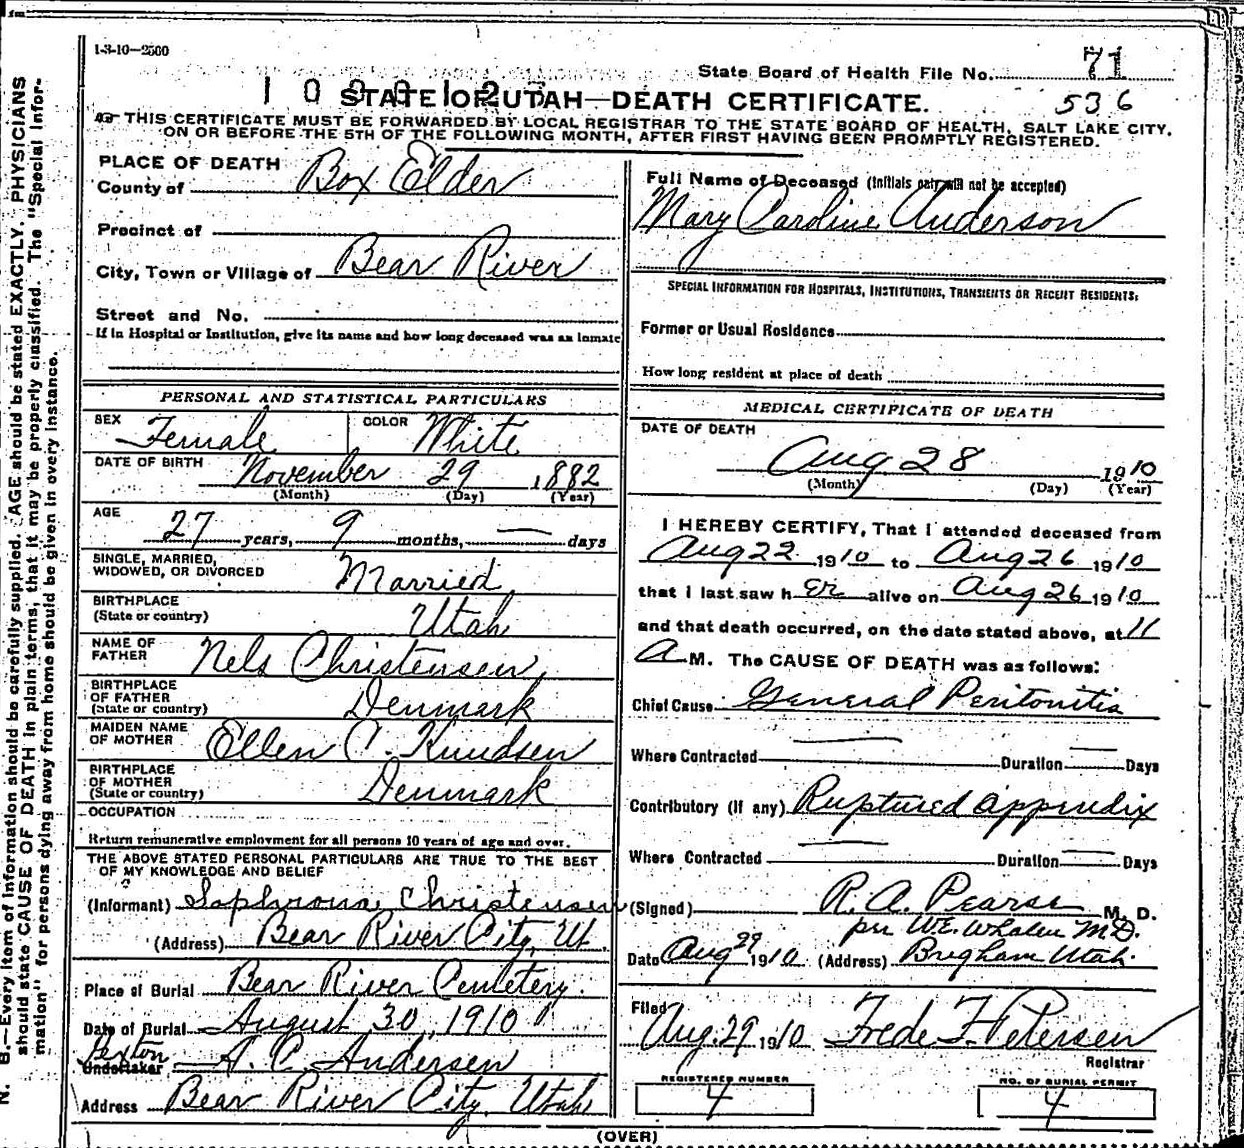 1-3-10—2500
State Board of Health File No. 71
536
STATE OF UTAH—DEATH CERTIFICATE.
THIS CERTIFICATE MUST BE FORWARDED BY LOCAL REGISTRAR TO THE STATE BOARD OF HEALTH, SALT LAKE CITY,
ON OR BEFORE THE 5TH OF THE FOLLOWING MONTH, AFTER FIRST HAVING BEEN PROMPTLY REGISTERED.
PLACE OF DEATH
County of Box Elder
Precinct of
City, Town or Village of Bear River
Street and No.
If in Hospital or Institution, give its name and how long deceased was an inmate
Full Name of Deceased (Initials only will not be accepted)
Mary Caroline Anderson
SPECIAL INFORMATION FOR HOSPITALS, INSTITUTIONS, TRANSIENTS OR RECENT RESIDENTS:
Former or Usual Residence
How long resident at place of death
PERSONAL AND STATISTICAL PARTICULARS
SEX Female COLOR White
DATE OF BIRTH November 29, 1882
(Month) (Day) (Year)
AGE 27 years, 9 months, — days
SINGLE, MARRIED,
WIDOWED, OR DIVORCED Married
BIRTHPLACE
(State or country) Utah
NAME OF
FATHER Nels Christensen
BIRTHPLACE
OF FATHER
(State or country) Denmark
MAIDEN NAME
OF MOTHER Ellen C. Knudsen
BIRTHPLACE
OF MOTHER
(State or country) Denmark
OCCUPATION
Return remunerative employment for all persons 10 years of age and over.
THE ABOVE STATED PERSONAL PARTICULARS ARE TRUE TO THE BEST
OF MY KNOWLEDGE AND BELIEF
(Informant) Sophrona Christensen
(Address) Bear River City, Ut.
Place of Burial Bear River Cemetery.
Date of Burial August 30, 1910
Sexton
Undertaker A. C. Andersen
Address Bear River City, Utah
MEDICAL CERTIFICATE OF DEATH
DATE OF DEATH
Aug 28 1910
(Month) (Day) (Year)
I HEREBY CERTIFY, That I attended deceased from
Aug 22 1910 to Aug 26 1910
that I last saw h er alive on Aug 26 1910
and that death occurred, on the date stated above, at 11
A M. The CAUSE OF DEATH was as follows:
Chief Cause General Peritonitis
Where Contracted — Duration — Days
Contributory (if any) Ruptured appendix
Where Contracted — Duration — Days
(Signed) R. A. Pearse M. D.
per W.E. Whalen M.D.
Date Aug 29 1910 (Address) Brigham Utah.
Filed
Aug. 29 1910 Frede F. Petersen
Registrar
REGISTERED NUMBER
4
NO. OF BURIAL PERMIT
4
(OVER)
N. B.—Every item of information should be carefully supplied. AGE should be stated EXACTLY. PHYSICIANS
should state CAUSE OF DEATH in plain terms, that it may be properly classified. The "Special Infor-
mation" for persons dying away from home should be given in every instance.